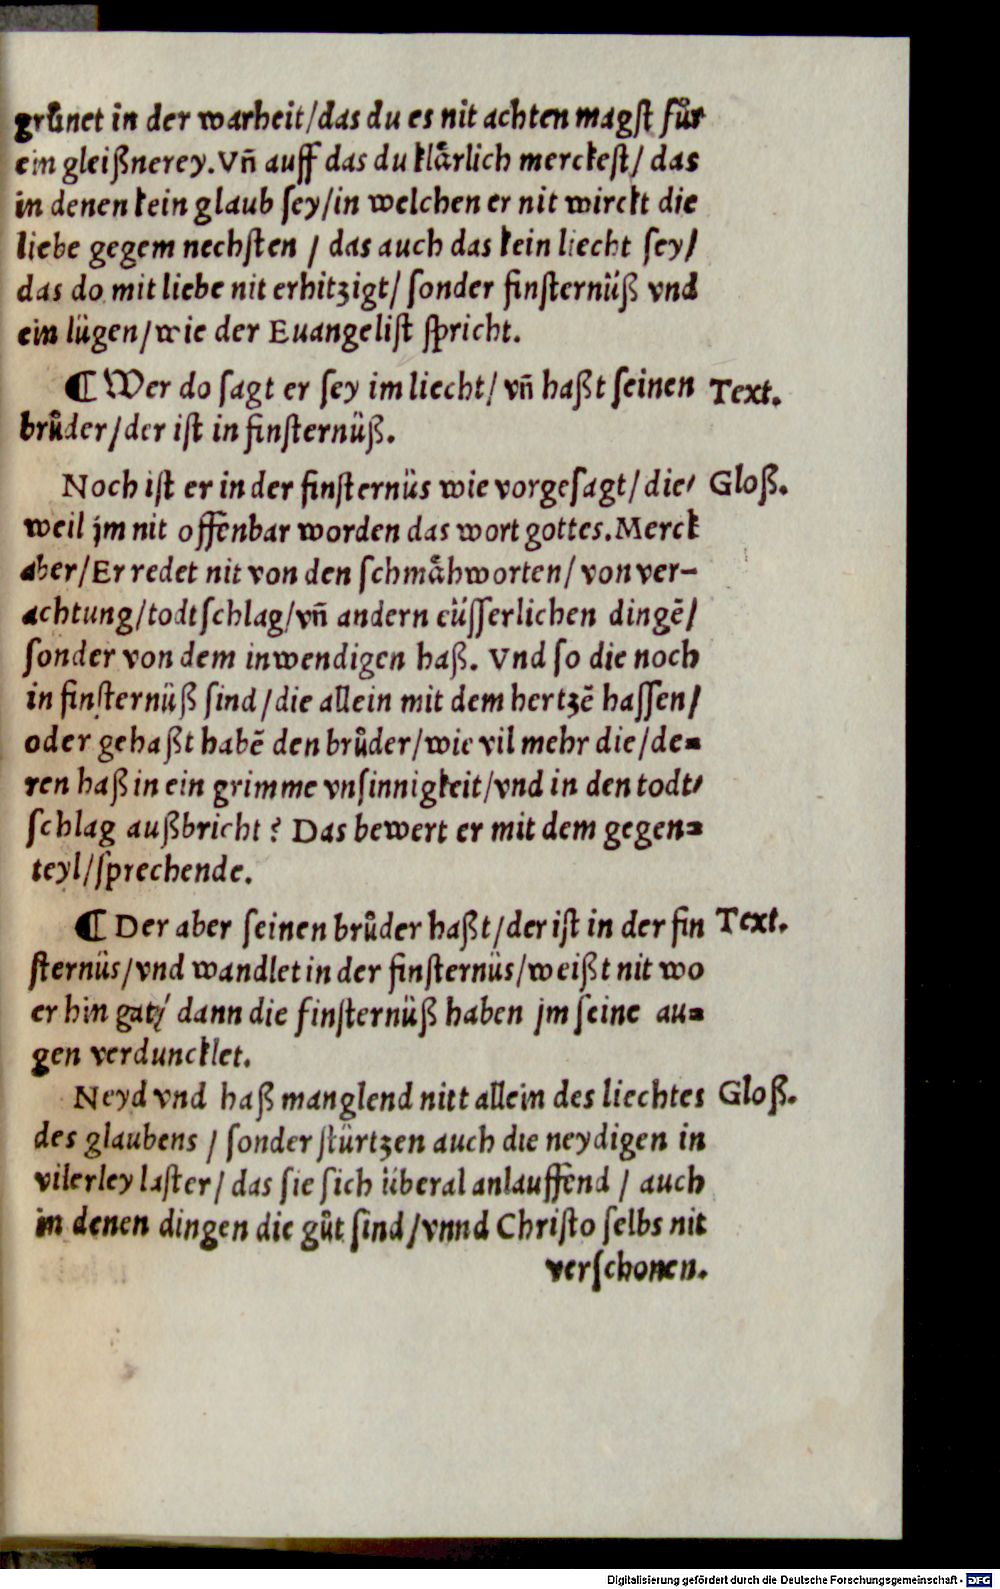 grůnet in der warheit/das du es nit achten magſt fůr
ein gleißnerey. Vñ auff das du klaͤrlich merckeſt/ das
in denen kein glaub ſey/in welchen er nit wirckt die
liebe gegem nechſten / das auch das kein liecht ſey/
das do mit liebe nit erhitzigt/ ſonder finſternüß vnd
ein lügen/wie der Euangeliſt ſpricht.
¶ Wer do ſagt er ſey im liecht/ vñ haßt ſeinen Text.
brůder/der iſt in finſternüß.
Noch iſt er in der finſternüs wie vorgeſagt/ die⸗ Gloß.
weil jm nit offēnbar worden das wort gottes. Merck
aber/Er redet nit von den ſchmaͤhworten/ von ver-
achtung/todtſchlag/vñ andern eüſſerlichen dingē/
ſonder von dem inwendigen haß. Vnd ſo die noch
in finſternüß ſind/die allein mit dem hertzē haſſen/
oder gehaßt habē den brůder/wie vil mehr die/de⸗
ren haß in ein grimme vnſinnigkeit/vnd in den todt⸗
ſchlag außbricht? Das bewert er mit dem gegen⸗
teyl/ſprechende.
¶ Der aber ſeinen brůder haßt/der iſt in der fin Text.
ſternüs/vnd wandlet in der finſternüs/weißt nit wo
er hin gat/ dann die finſternüß haben jm ſeine au⸗
gen verduncklet.
Neyd vnd haß manglend nitt allein des liechtes Gloß.
des glaubens / ſonder ſtürtzen auch die neydigen in
vilerley laſter/ das ſie ſich überal anlauffend / auch
in denen dingen die gůt ſind/vnnd Chriſto ſelbs nit
verſchonen.
Digitalisierung gefördert durch die Deutsche Forschungsgemeinschaft - DFG